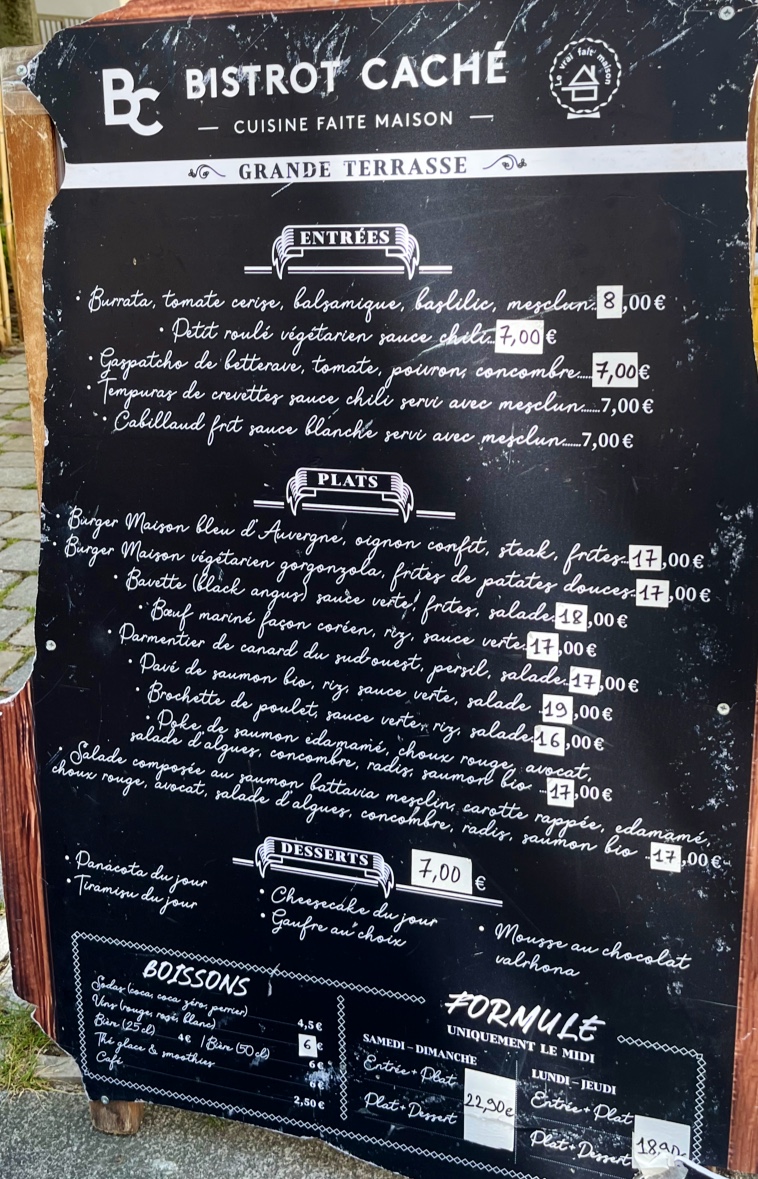 BC BISTROT CACHÉ
Le vrai fait maison
— CUISINE FAITE MAISON —
GRANDE TERRASSE
ENTRÉES
• Burrata, tomate cerise, balsamique, baslilic, mesclun. 8,00 €
• Petit roulé végétarien sauce chili.. 7,00 €
• Gaspatcho de betterave, tomate, poivron, concombre.... 7,00 €
• Tempuras de crevettes sauce chili servi avec mesclun......7,00 €
• Cabillaud frit sauce blanche servi avec mesclun.....7,00 €
PLATS
• Burger Maison bleu d'Auvergne, oignon confit, steak, frites.. 17,00 €
• Burger Maison végétarien gorgonzola, frites de patates douces. 17,00 €
• Bavette (black angus) sauce verte, frites, salade. 18,00 €
• Bœuf mariné façon coréen, riz, sauce verte. 17,00 €
• Parmentier de canard du sud-ouest, persil, salade. 17,00 €
• Pavé de saumon bio, riz, sauce verte, salade . 19,00 €
• Brochette de poulet, sauce verte, riz, salade. 16,00 €
• Poke de saumon edamamé, choux rouge, avocat,
salade d'algues, concombre, radis, saumon bio .. 17,00 €
• Salade composée au saumon battavia mesclin, carotte rappée, edamamé,
choux rouge, avocat, salade d'algues, concombre, radis, saumon bio .. 17,00 €
DESSERTS 7,00 €
• Panacota du jour
• Tiramisu du jour
• Cheesecake du jour
• Gaufre au choix
• Mousse au chocolat
valrhona
BOISSONS
Sodas (coca, coca zéro, perrier) 4,5 €
Vins (rouge, rosé, blanc)
Bière (25 cl) 4€ / Bière (50 cl) 6 €
Thé glace & smoothies 6 €
Café 2,50 €
FORMULE
UNIQUEMENT LE MIDI
SAMEDI – DIMANCHE
Entrée + Plat
Plat + Dessert
22,90e
LUNDI – JEUDI
Entrée + Plat
Plat + Dessert
18,90